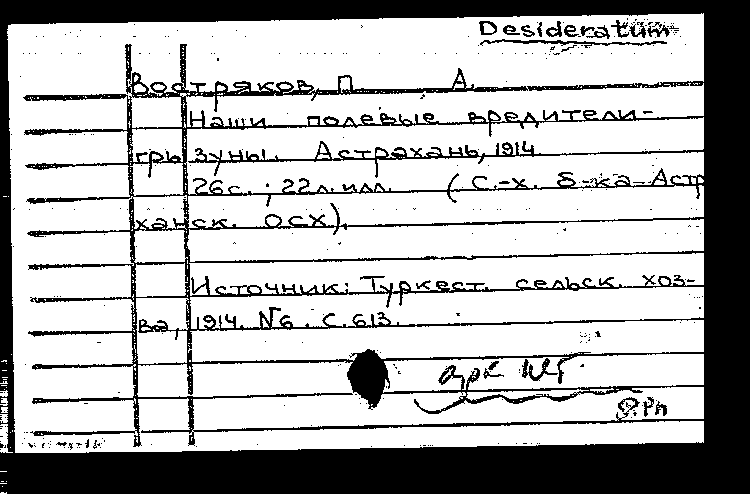 Desideratum
Востряков, П А.
Наши полевые вредители-
грызуны. Астрахань, 1914
26с.; 22л. илл. (С.-х. б-ка Астр
ханск. ОСХ).
Источник: Туркест. сельск. хоз-
ва, 1914. №6. С.613.